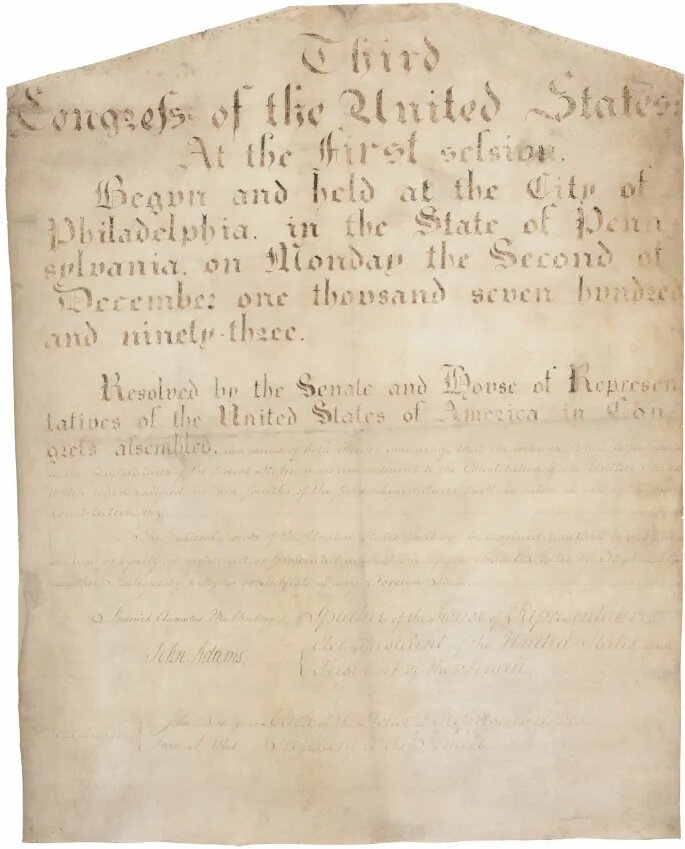 Third
Congreſs of the United States:
At the First seſsion,
Begun and held at the City of
Philadelphia, in the State of Penn-
sylvania, on Monday the Second of
December, one thousand seven hundred
and ninety-three.
Resolved by the Senate and House of Represen-
tatives of the United States of America, in Con-
greſs aſsembled, two thirds of both Houses concurring, that the following
by the Legislatures of the several States, as an amendment to the Constitution of the United States
which when ratified by three fourths of the said Legislatures shall be valid as part of the said
Constitution, viz.
The Judicial power of the United States shall not be construed to extend to
commenced or prosecuted against one of the United States by Citizens of
another State, or by Citizens or Subjects of any Foreign State.
Frederick Augustus Muhlenberg Speaker of the House of Representatives
John Adams, Vice President of the United States, and
President of the Senate.
John Beckley Clerk of the House of Representatives
Sam. A. Otis Secretary of the Senate.